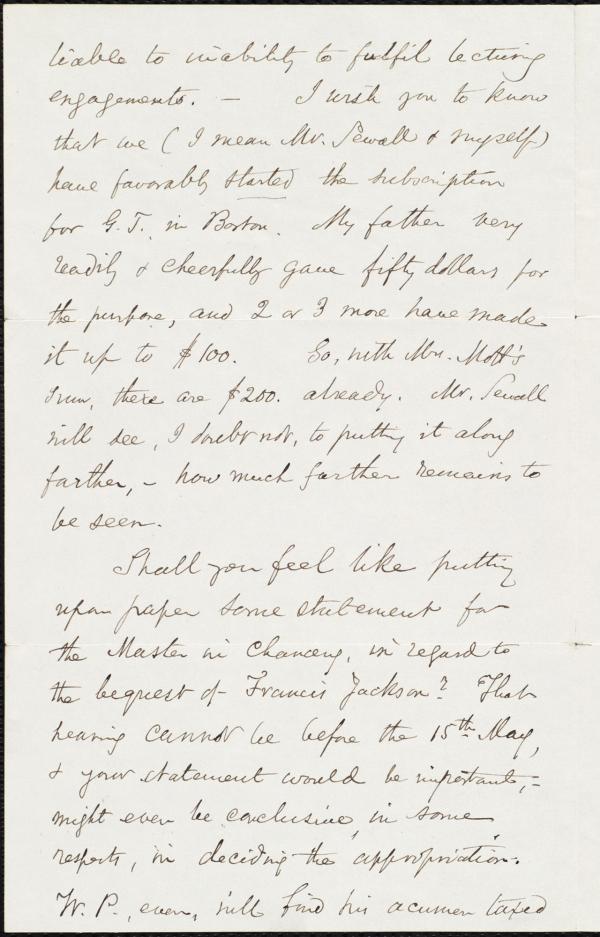 liable to inability to fulfil lecturing
engagements. — I wish you to know
that we (I mean Mr. Sewall & myself)
have favorably started the subscription
for G. T. in Boston. My father very
readily & cheerfully gave fifty dollars for
the purpose, and 2 or 3 more have made
it up to $100. So, with Mrs. Mott's
sum, there are $200. already. Mr. Sewall
will see, I doubt not, to putting it along
farther, – how much farther remains to
be seen.
Shall you feel like putting
upon paper some statement for
the Master in Chancery, in regard to
the bequest of Francis Jackson? That
hearing cannot be before the 15th May,
& your statement would be important, –
might even be conclusive, in some
respects, in deciding the appropriation.
W. P., even, will find his acumen taxed